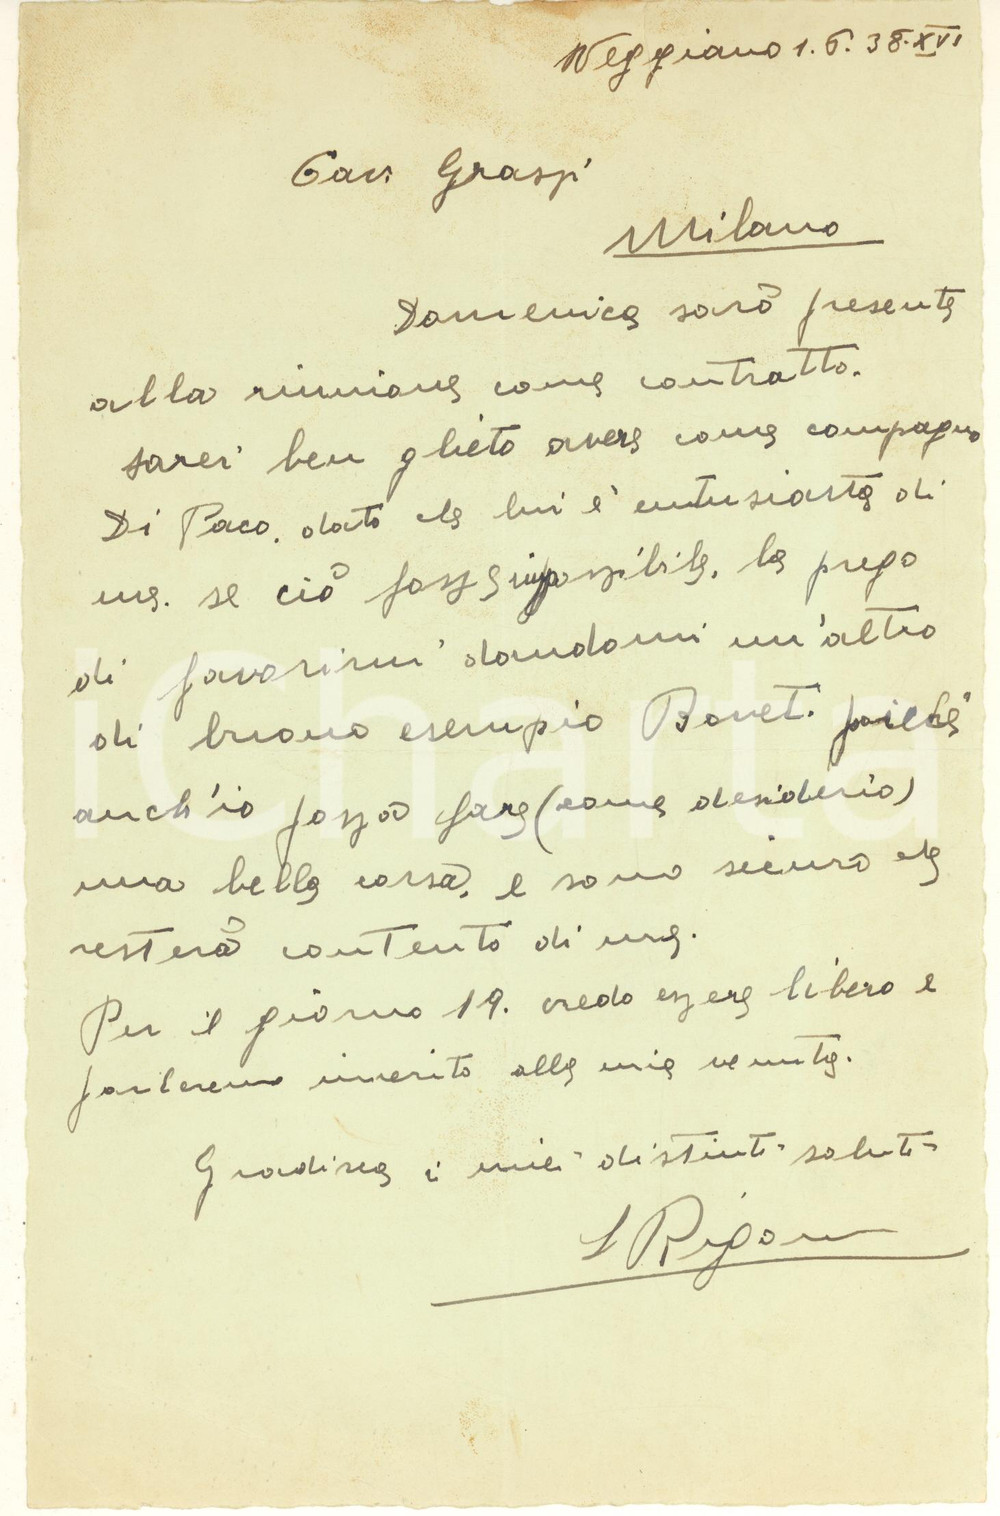 Veggiano 1.6.38.XVI
Cav. Graspi
Milano
Domenica sarò presente
alla riunione come contratto.
sarei ben glieto avere come compagno
Di Paco, dato che lui è entusiasta di
me. se ciò fosse impossibile, la prego
di favorirmi dandomi un'altro
di buono esempio Bovet. poichè
anch'io possa fare (come desiderio)
una bella corsa, e sono sicuro che
resterà contento di me.
Per il giorno 19. credo essere libero e
parleremo inmerito alla mia venuta.
Gradisca i miei distinti saluti
Rigoni
iCharta